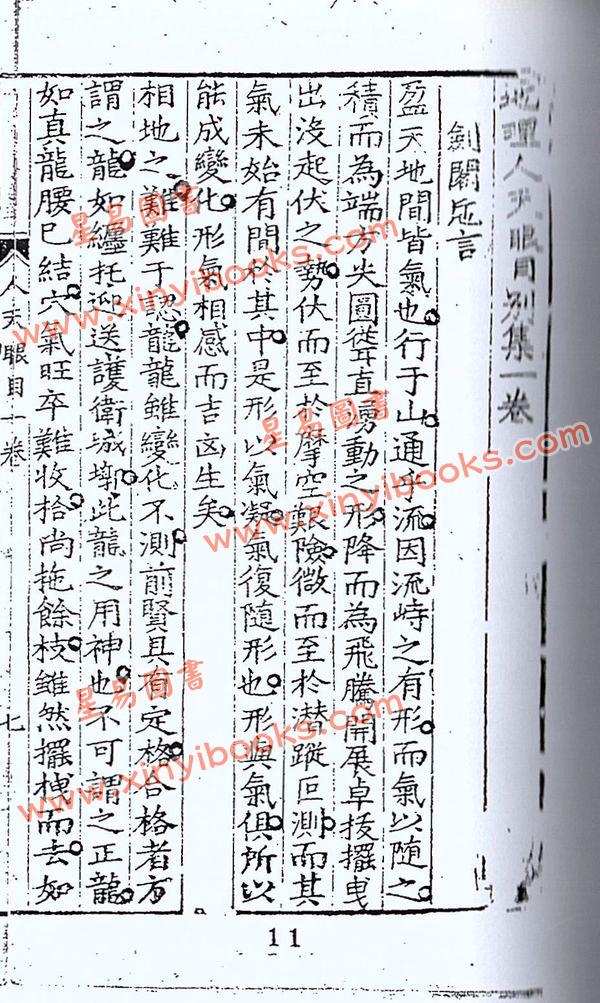 地理人天眼目別集一卷
劍閣巵言
盈天地間皆氣也行于山通乎流因流峙之有形而氣以隨之
積而為端方尖圓聳直湧動之形降而為飛騰開展卓拔擺曳
出沒起伏之勢伏而至於摩空艱險微而至於潛蹤叵測而其
氣未始有間於其中是形以氣凝氣復隨形也形與氣俱所以
能成變化形氣相感而吉凶生矣
相地之難難于認龍龍雖變化不測前賢具有定格合格者方
謂之龍如纏托迎送護衛城此龍之用神也不可謂之正龍
如真龍腰已結穴氣旺卒難收拾尚拖餘枝雖然擺而去如
人天眼目一卷
七
11
星易圖書
www.xinyibooks.com
星易圖書
www.xinyibooks.com
星易圖書
www.xinyibooks.com